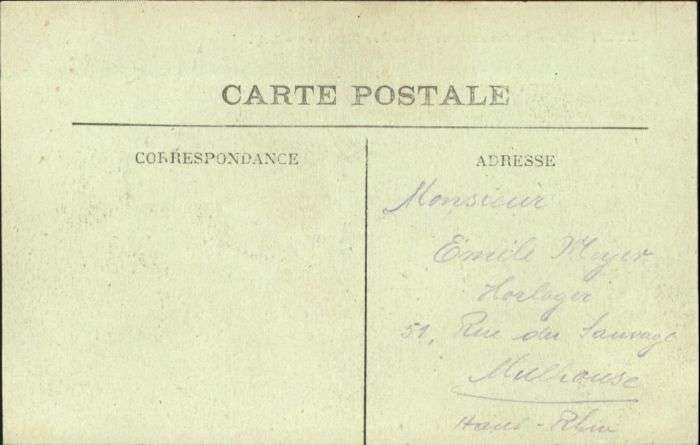 CARTE POSTALE
CORRESPONDANCE
ADRESSE
Monsieur
Emile Meyer
Horloger
51, Rue du Sauvage
Mulhouse
Haut-Rhin